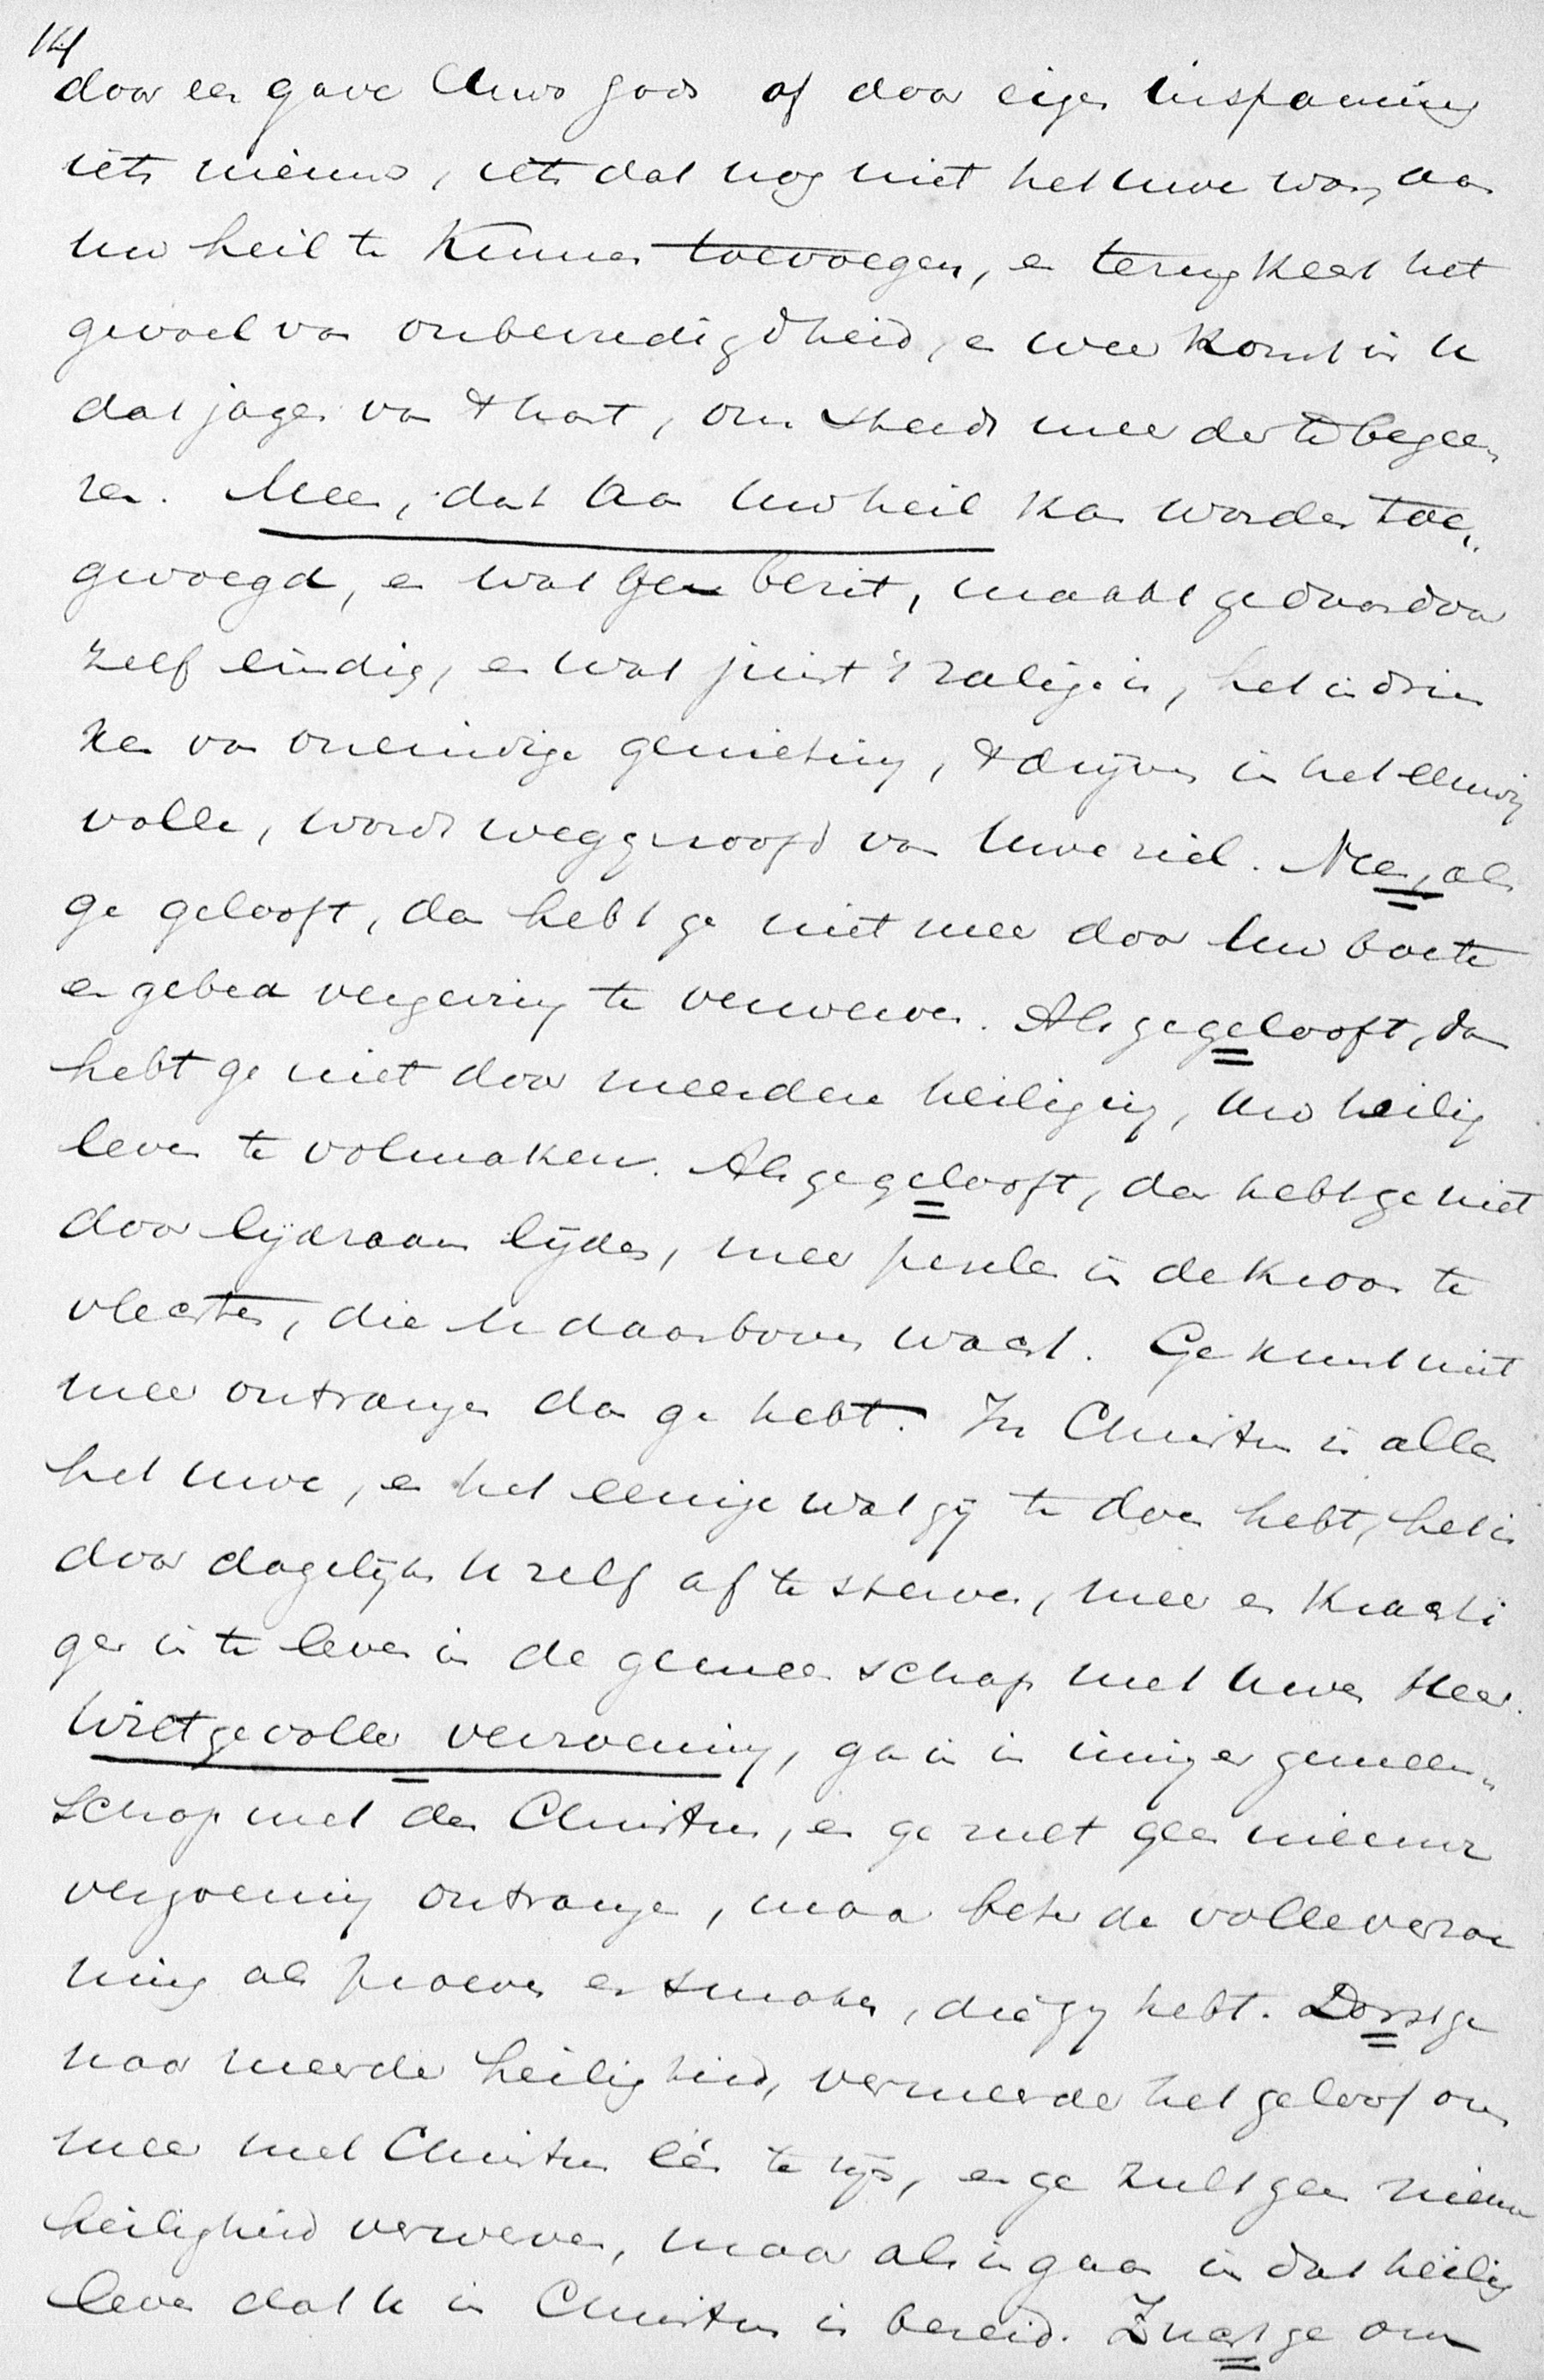 14
door een gave Uws Gods of door eigen inspanning
iets nieuws, iets dat nog niet het uwe was, aan
uw heil te kunnen toevoegen, en terug keert het
gevoel van onbevredigdheid, en weer komt in u
dat jagen van 't hart, om steeds meerder te begee„
ren. Meen, dat aan Uw heil kan worden toe„
gevoegd, en wat ge bezit, maakt ge daardoor
zelf eindig, en wat juist 't zalige is, het indrin
ken van oneindige genieting, 't drijven in het eeuwig
volle, wordt weggeroofd van Uwe ziel. Nee, als
ge gelooft, dan hebt ge niet meer door Uw boete
en gebed vergeving te verwerven. Als ge gelooft, dan
hebt ge niet door meerdere heiliging, Uw heilig
leven te volmaken. Als ge gelooft, dan hebt ge niet
door lijdzaam lijden, meer paarlen in de kroon te
vlechten, die U daarboven wacht. Ge kunt niet
meer ontvangen dan ge hebt. In Christus is alles
het uwe, en het eenige wat gij te doen hebt, het is
door dagelijks U zelf af te sterven, meer en krachti
ger in te leven in de gemeenschap met Uwen Heer.
Wilt ge voller verzoening, ga in in inniger gemeen„
schap met den Christus, en ge zult geen nieuwe
verzoening ontvangen, maar beter de volle verzoe
ning als proeven en smaken, die gij hebt. Dorst ge
naar meerder heiligheid, vermeerder het geloof om
meer met Christus één te zijn, en ge zult geen nieuwe
heiligheid verwerven, maar als ingaan in dat heilig
leven dat U in Christus is bereid. Zucht ge om